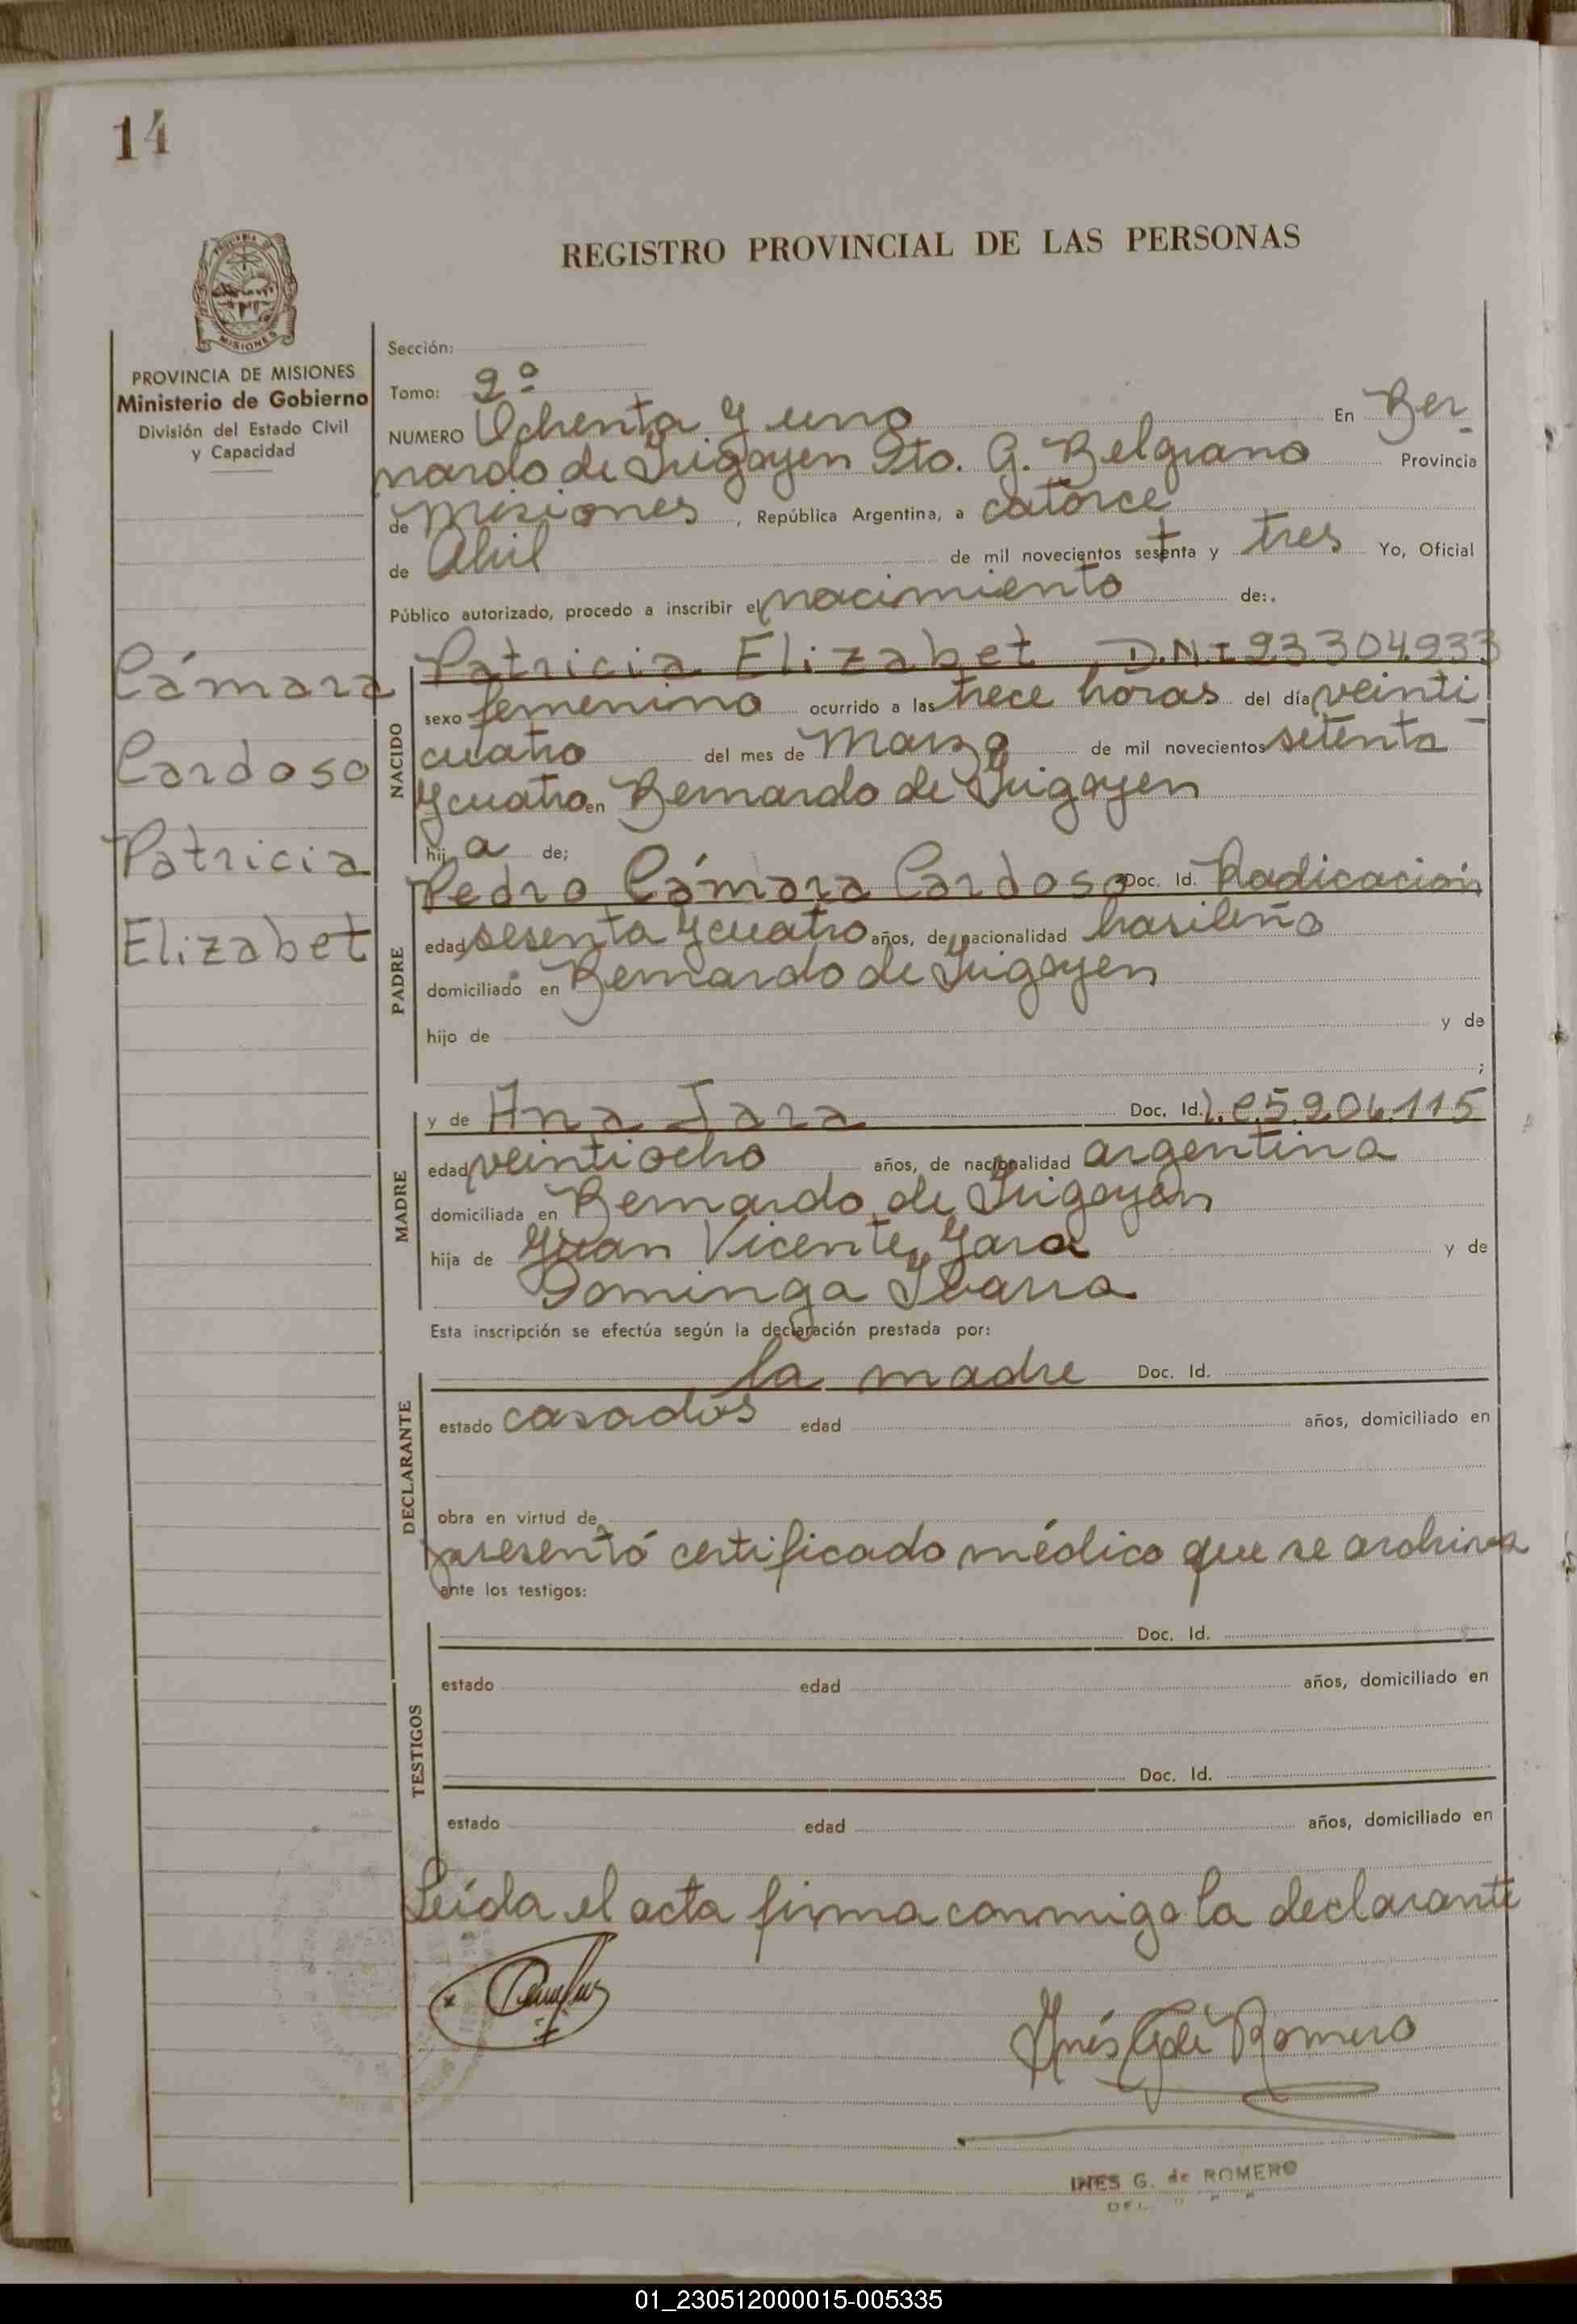 14
REGISTRO PROVINCIAL DE LAS PERSONAS
MISIONES
PROVINCIA DE MISIONES
Ministerio de Gobierno
División del Estado Civil
y Capacidad
Cámara
Cardoso
Patricia
Elizabet
Sección:
Tomo: 2º
NUMERO Ochenta y uno En Ber-
nardo de Irigoyen Dto. G. Belgrano Provincia
de Misiones, República Argentina, a catorce
de Abril de mil novecientos setenta y tres Yo, Oficial
Público autorizado, procedo a inscribir el nacimiento de:
NACIDO
Patricia Elizabet D.N.I 23304.933
sexo femenino ocurrido a las trece horas del día veinti
cuatro del mes de Marzo de mil novecientos setenta
y cuatro en Bernardo de Irigoyen
hij a de;
PADRE
Pedro Cámara Cardoso Doc. Id. Radicación
edad sesenta y cuatro años, de nacionalidad brasileño
domiciliado en Bernardo de Irigoyen
hijo de y de
;
MADRE
y de Ana Jara Doc. Id. L.C 5.206.115
edad veintiocho años, de nacionalidad argentina
domiciliada en Bernardo de Irigoyen
hija de Juan Vicente Jara y de
Dominga Ibarra
Esta inscripción se efectúa según la declaración prestada por:
DECLARANTE
la madre Doc. Id.
estado casados edad años, domiciliado en
obra en virtud de
presentó certificado médico que se archiva
ante los testigos:
TESTIGOS
Doc. Id.
estado edad años, domiciliado en
Doc. Id.
estado edad años, domiciliado en
Leída el acta firma conmigo la declarante
Inés G de Romero
INES G. de ROMERO
DEL.
01_230512000015-005335